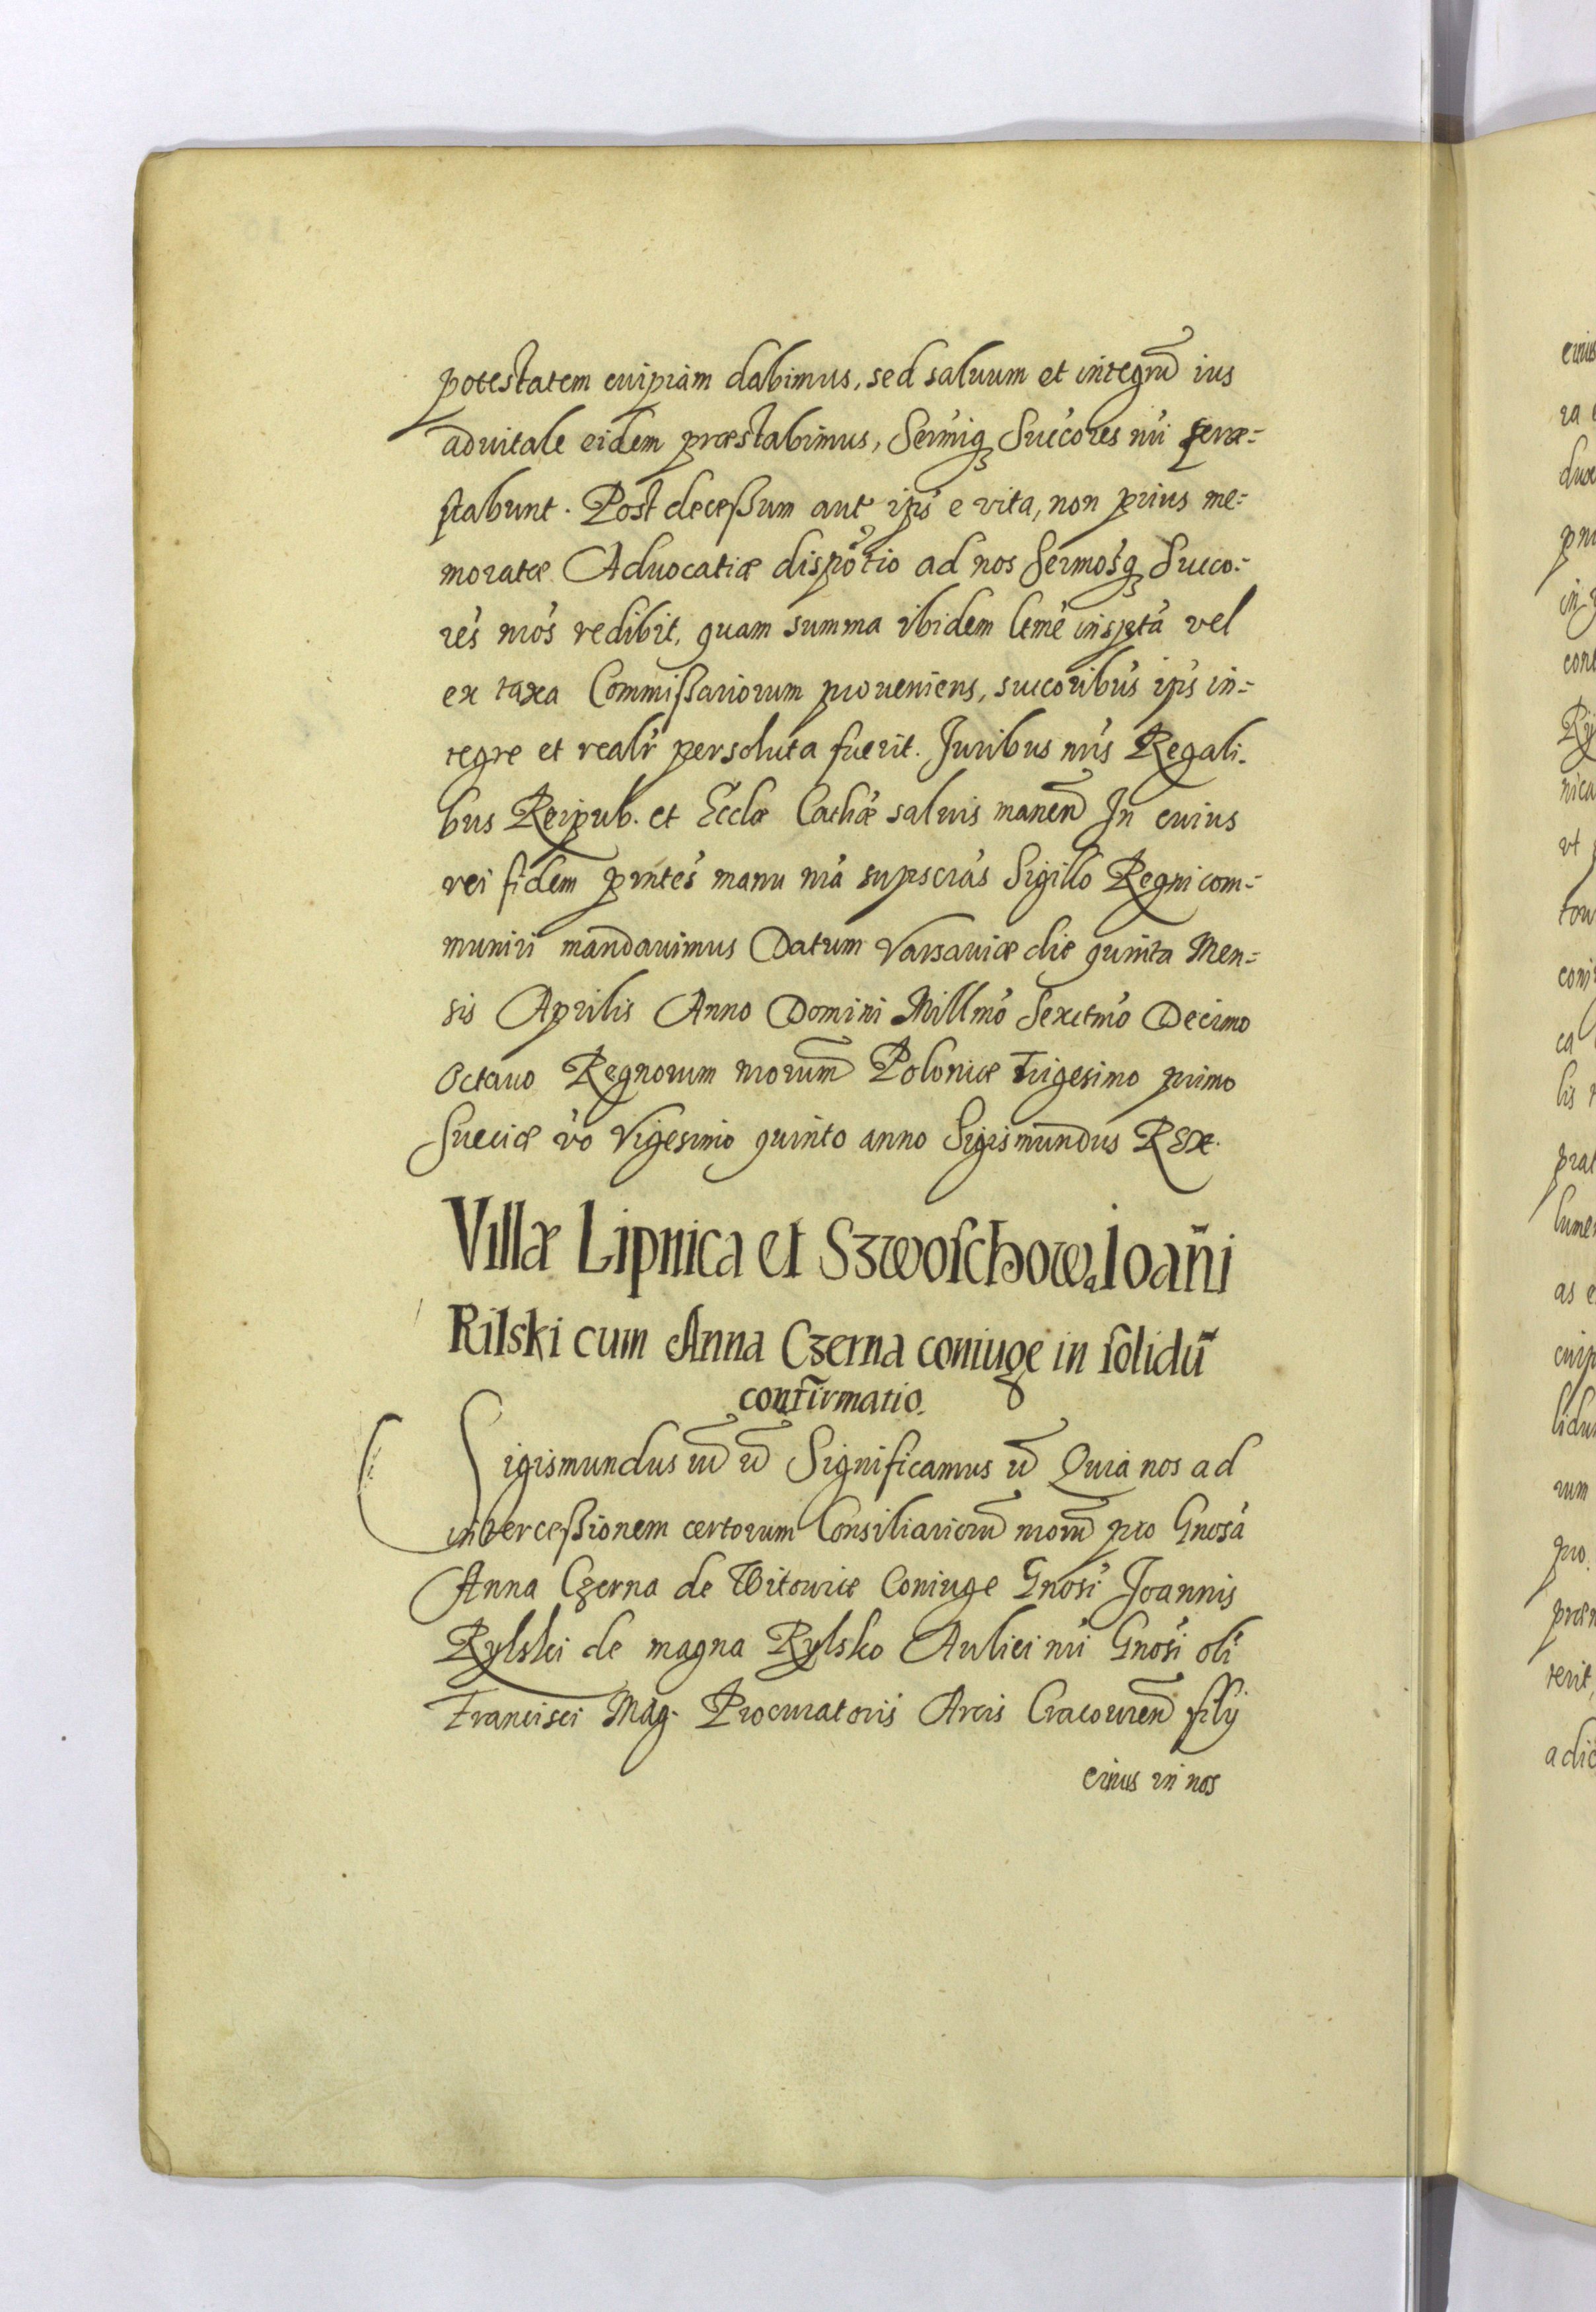 potestatem cuipiam dabimus, sed saluum et integrū ius
aduitale eidem præstabimus, Sermiq3 Succores nri præ=
stabunt. Post decessum aut ips e vita, non prius me=
moratæ Aduocatiæ dispotio ad nos Sermosq3 Succo=
res nros redibit, quam summa ibidem leme inspta vel
ex taxa Commissariorum proueniens, succoribus ips in=
tegre et realr persoluta fuerit. Juribus nris Regali.
bus Reipub. et Eccłæ Cathæ saluis manen In cuius
rei fidem pntes manu nra supscras Sigillo Regni com=
muniri mandauimus Datum Varsauiæ die quinta Men=
sis Aprilis Anno Domini Millmo Sexctmo Decimo
Octauo Regnorum nrorum Poloniæ Trigesimo primo
Sueciæ vo Vigesimo quinto anno Sigismundus REX.
Villæ Lipnica et Szwoschowa Ioañi
Rilski cum Anna Czerna coniuge in solidū
confirmatio.
Sigismundus etc Significamus etc Quia nos ad
intercessionem certorum Consiliariorū nrorū pro Gnosa
Anna Czerna de Witowice Coniuge Gnosi Joannis
Rylski de magna Rylsko Aulici nri Gnosi oli
Francisci Mag. Procuratoris Arcis Cracouien filij
eius in nos